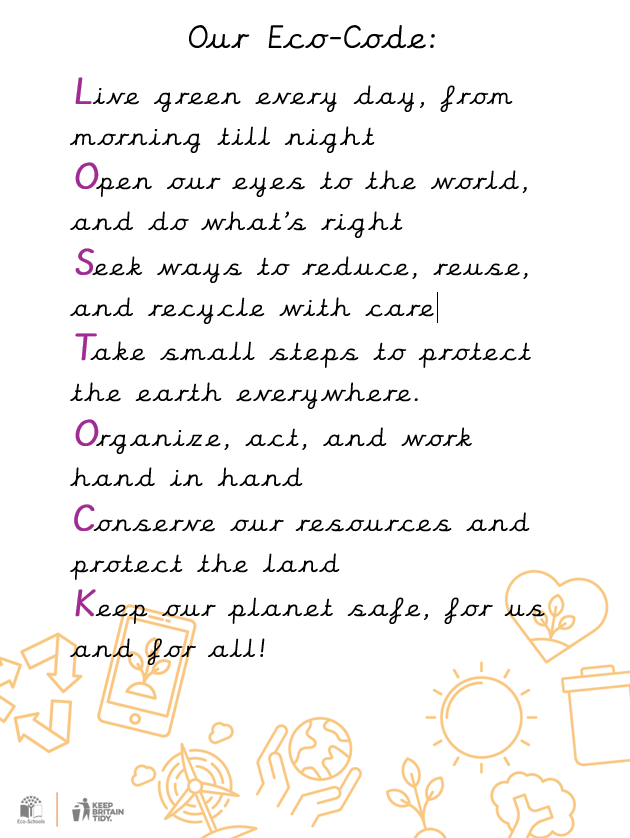 Our Eco-Code:
Live green every day, from
morning till night
Open our eyes to the world,
and do what's right
Seek ways to reduce, reuse,
and recycle with care
Take small steps to protect
the earth everywhere.
Organize, act, and work
hand in hand
Conserve our resources and
protect the land
Keep our planet safe, for us
and for all!
Eco-Schools
KEEP
BRITAIN
TIDY.